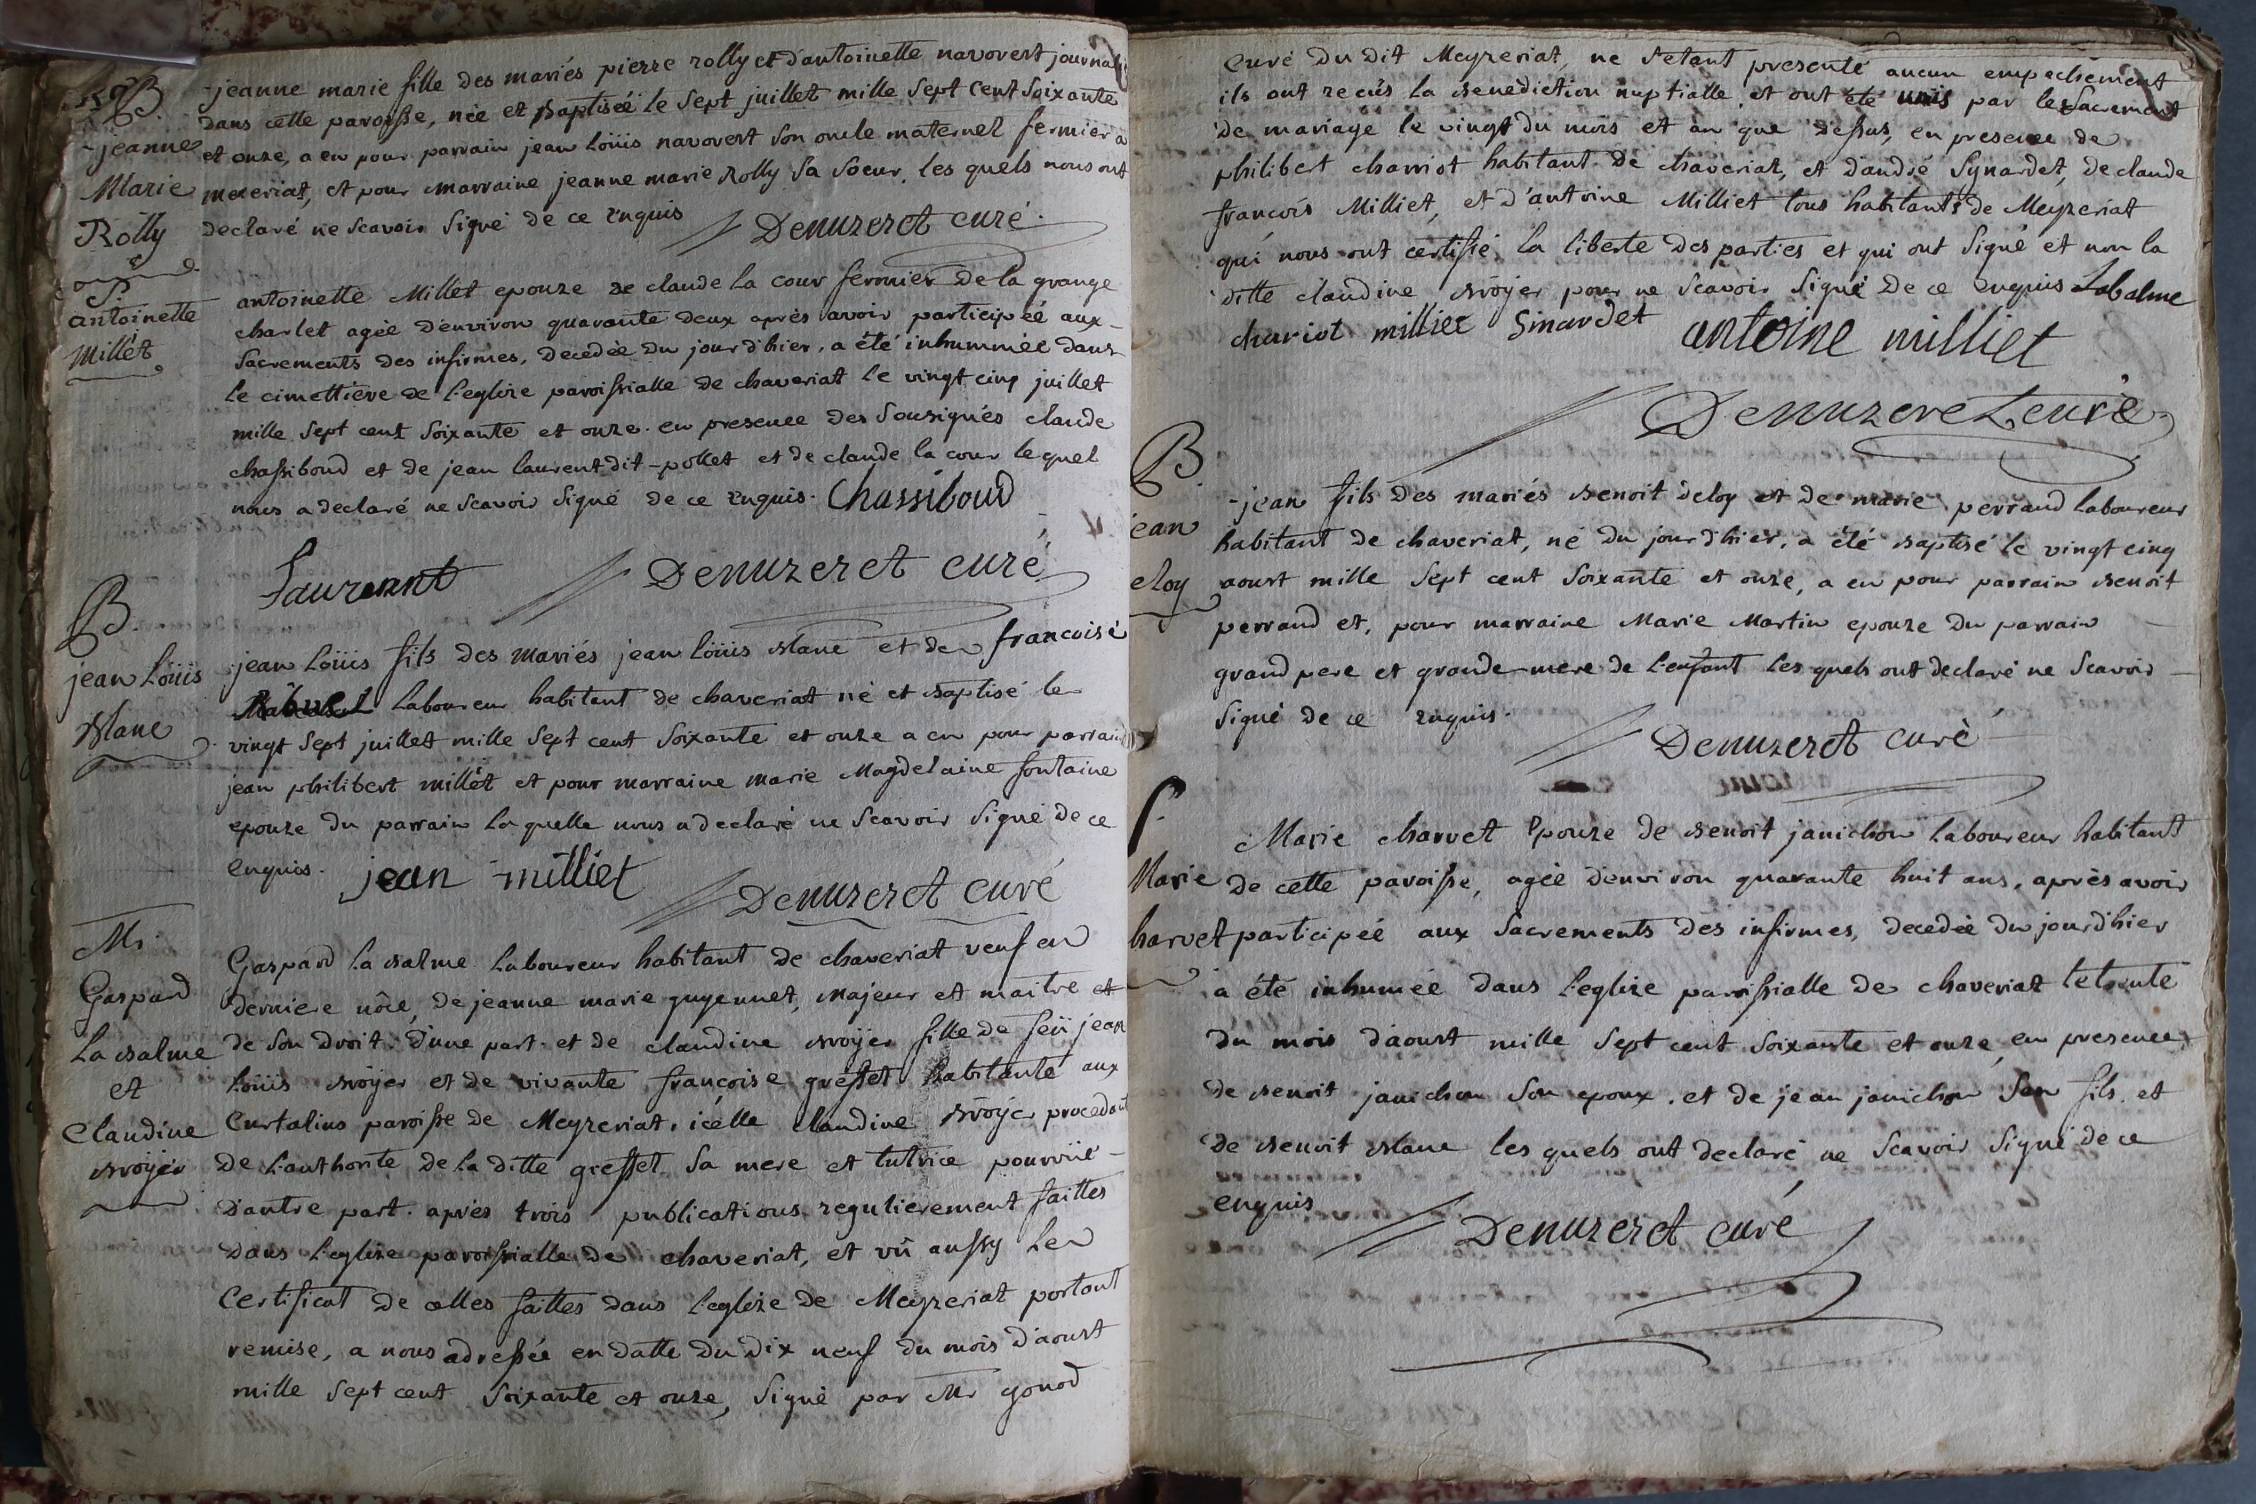 B.
jeanne
Marie
Rolly
jeanne marie fille des mariés pierre rolly et d'antoinette navoret
dans cette paroisse, née et baptisée le sept juillet mille sept cent soixante
et onze, a eu pour parrain jean loüis navoret son oncle maternel fermier a
mezeriat, et pour marraine jeanne marie Rolly sa soeur, les quels nous ont
declaré ne scavoir signé de ce enquis
Denuzeret curé.
S.
antoinette
Millét
antoinette Millét epouze de claude la cour fermier de la grange
charlet agée d'environ quarante deux aprés avoir participeé aux
sacrements des infirmes, decedée du jourd'hier, a été inhummée dans
le cimettiere de l'eglize paroissialle de chaveriat le vingt cinq juillet
mille sept cent soixante et onze. en presence des sousignés claude
chassiboud et de jean laurent dit-pollet et de claude la cour lequel
nous a declaré ne scavoir signé de ce enquis. Chassiboud
Laurent Denuzeret curé
B.
jean loüis
blanc
jean loüis fils des mariés jean loüis blanc et de francoise
laboureur habitant de chaveriat né et baptisé le
vingt sept juillet mille sept cent soixante et onze a eu pour parrain
jean philibert millét et pour marraine marie Magdelaine fontaine
epouze du parrain la quelle nous a declaré ne scavoir signé de ce
enquis. jean milliet
Denuzeret curé
M.
Gaspard
la balme
et
Claudine
broÿer
Gaspard la balme laboureur habitant de chaveriat veuf en
derniere nôce, de jeanne marie guyennet, Majeur et maitre et
de son droit. d'une part. et de claudine broÿer fille de feü jean
loüis broÿer et de vivante françoise gresset habitante aux
Curtalins paroisse de Meyzeriat. icelle claudine broÿer procedant
de l'authorité de la ditte gresset sa mere et tutrice pourvüe
d'autre part. aprés trois publications regulierement faittes
dans l'eglize paroissialle de chaveriat, et vû aussy le
Certificat de celles faittes dans l'eglize de Meyzeriat portant
remise, a nous adressée en datte du dix neuf du mois d'aoust
mille sept cent soixante et onze, signé par Mr gonod
curé du dit Meyzeriat, ne s'etant presenté aucun empechement
ils ont recûs la benediction nuptialle, et ont été unis par le sacrement
de mariage le vingt du mois et an que dessus, en presence de
philibert charriot habitant de chaveriat, et d'andré Synardet, de claude
francois Milliet, et d'antoine Milliet tous habitants de Meyzeriat
qui nous ont certifié la liberté des parties et qui ont signé et non la
ditte claudine broÿer pour ne scavoir signé de ce enquis Labalme
chariot milliet Sinardet antoine milliet
Denuzeret curé
B.
jean
eloy
jean fils des mariés benoit deloy et de marie perraud laboureur
habitant de chaveriat, né du jourd'hier, a été baptisé le vingt cinq
aoust mille sept cent soixante et onze, a eu pour parrain benoit
perraud et, pour marraine Marie Martin epouze du parrain
grand pere et grande-mere de l'enfant les quels ont declaré ne scavoir
signé de ce enquis.
Denuzeret curé
S.
Marie
harvet
Marie charvet epouze de benoit janichon laboureur habitant
de cette paroisse, agée d'environ quarante huit ans, aprés avoir
participeé aux sacrements des infirmes, decedée du jourd'hier
a été inhumée dans l'eglize paroissialle de chaveriat le trente
du mois d'aoust mille sept cent soixante et onze, en presence
de benoit janichon son epoux, et de jean janichon son fils, et
de benoit blanc les quels ont declaré ne scavoir signé de ce
enquis
Denuzeret curé